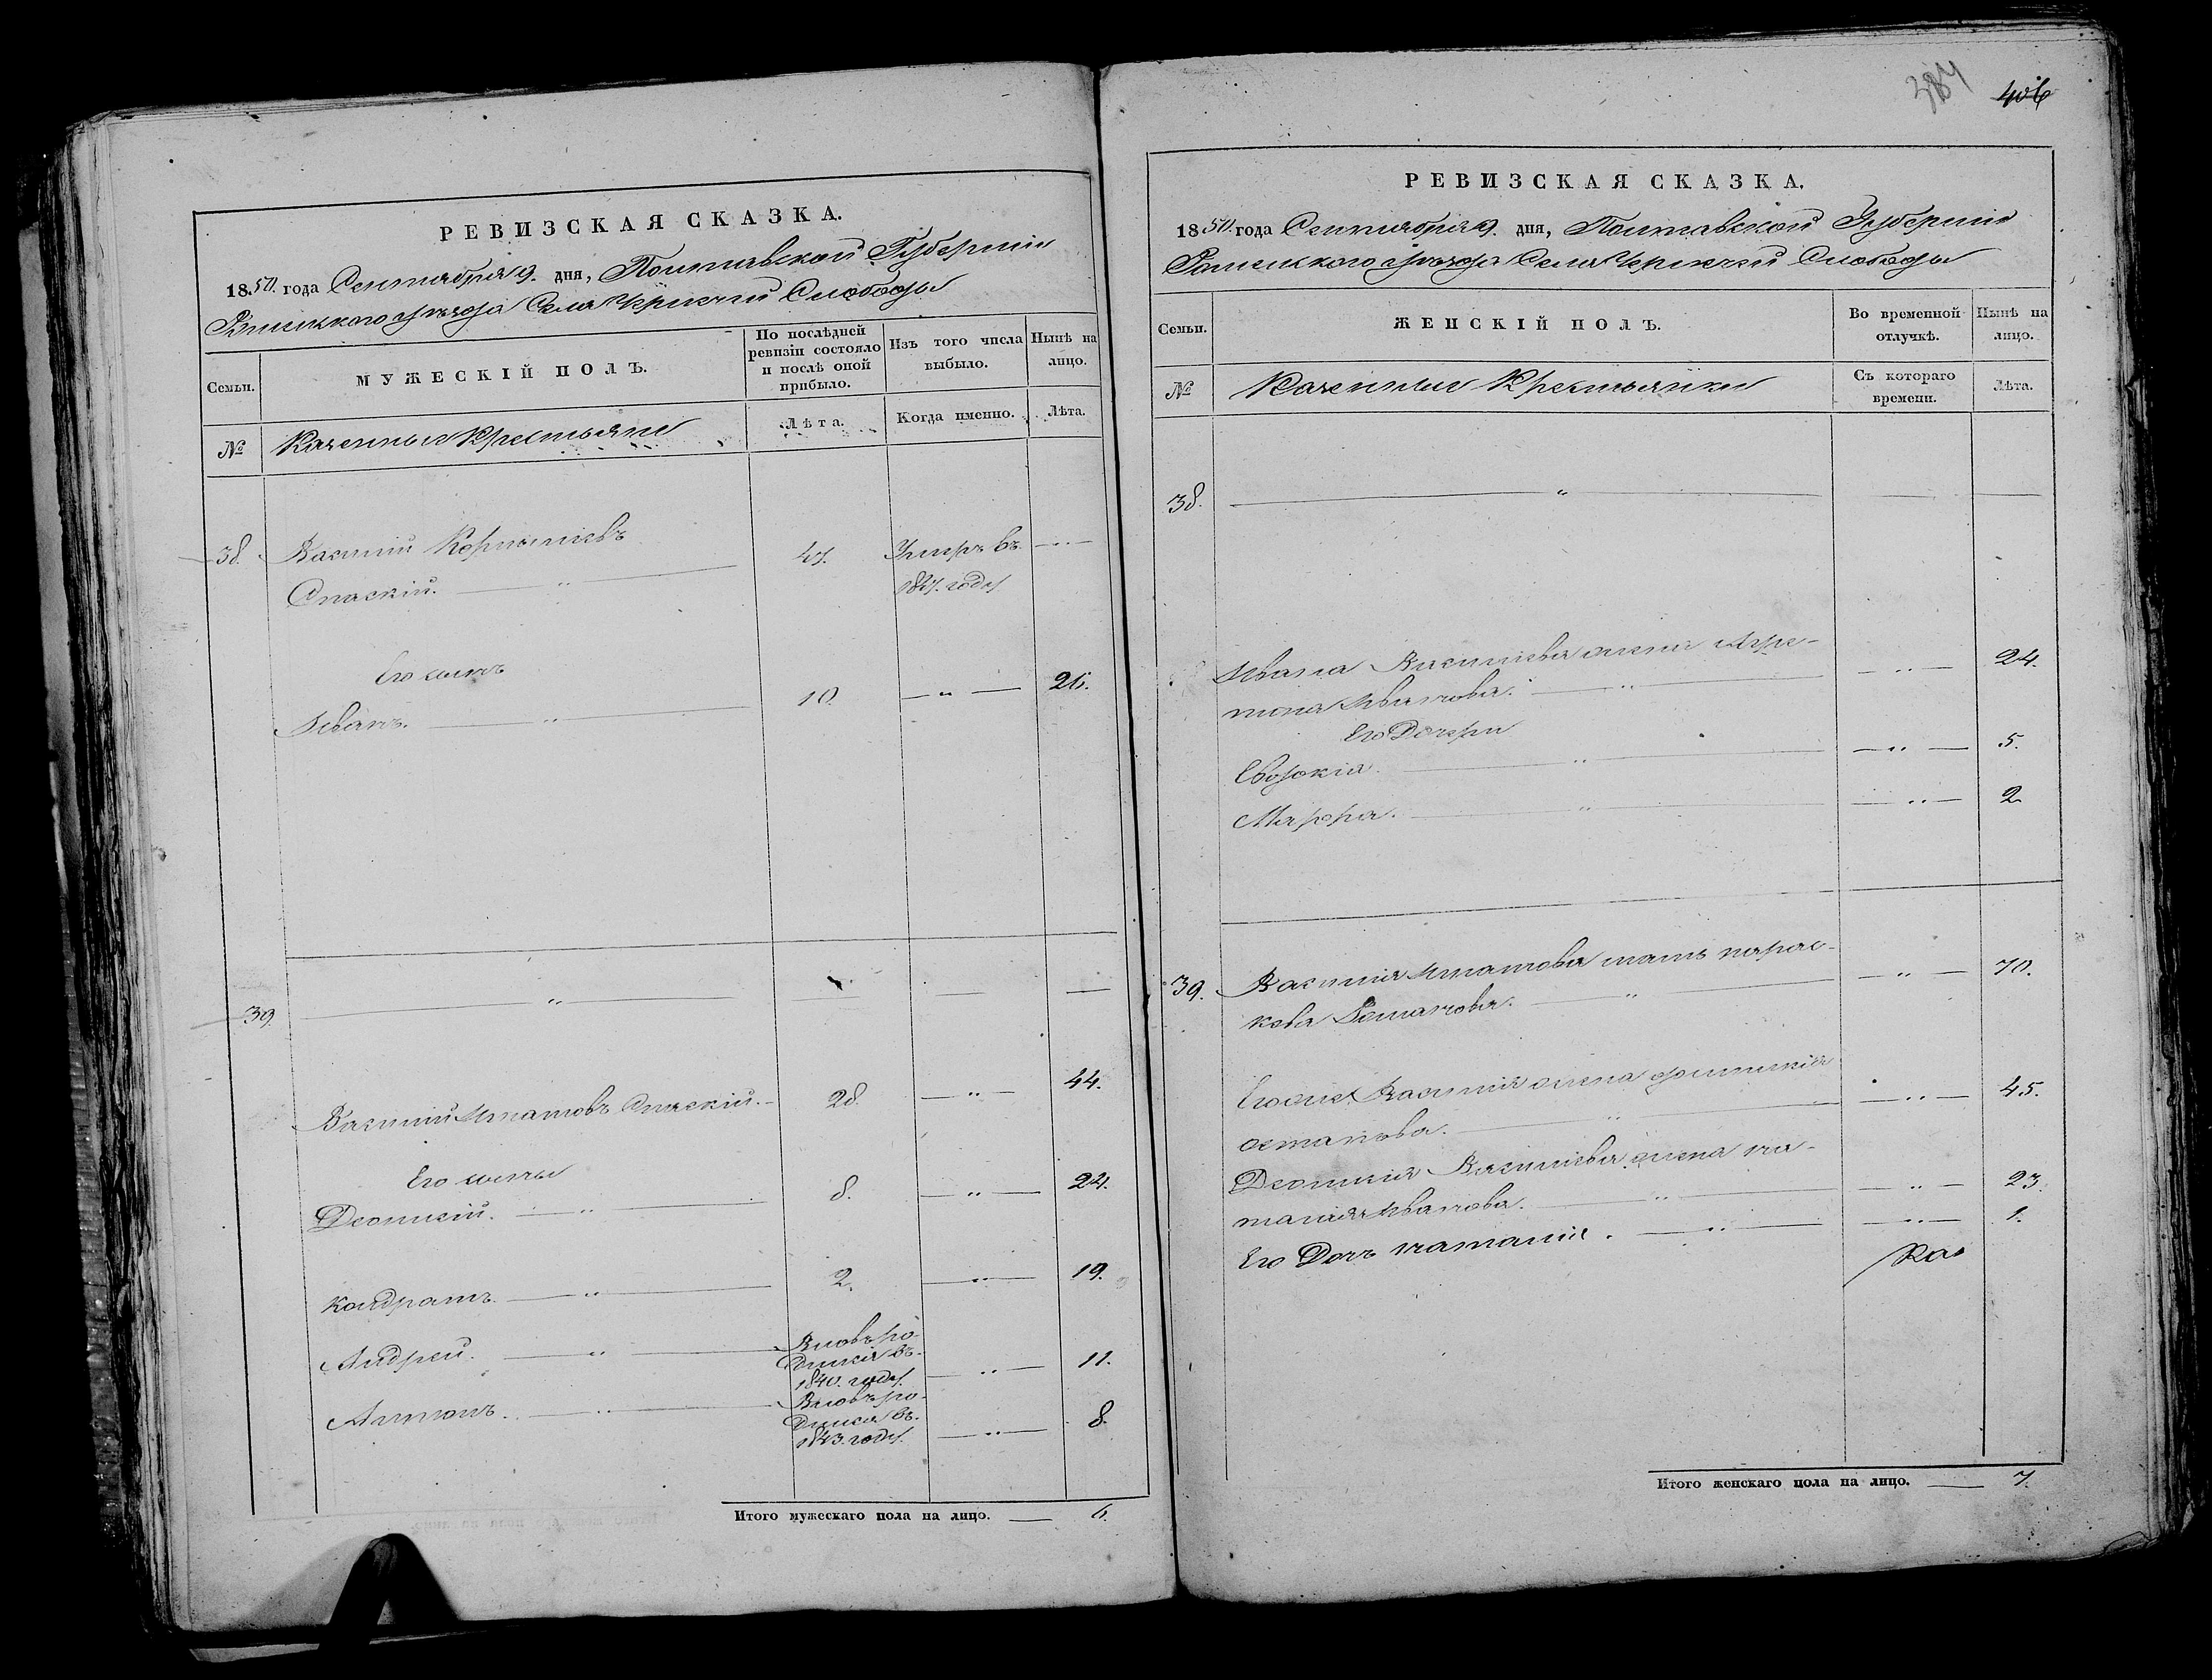 РЕВИЗСКАЯ СКАЗКА.
1850. года Сентября 9. дня, Полтавской Губерніи
Роменскаго уѣзда Села Слободы
Семьи.
МУЖЕСКІЙ ПОЛЪ.
По послѣдней ревизіи состояло и послѣ оной прибыло.
Изъ того числа выбыло.
Нынѣ на лицо.
№
Казенныи Крестьяне
Лѣта.
Когда именно.
Лѣта.
38. Василій Корнѣліевъ 47. Умеръ въ
Спаскій. годѵ
Его сынъ
Иванъ. 10. 26.
39.
Василій Игнатовъ Спаскій. 28. 44.
Его сыны
Леонтій. 8. 24.
Кондратъ. 2. 19.
Андрей. Вновь ро-
дился въ
1840. году. 11.
Антонъ. Вновь ро-
дился въ
1843. году. 8.
Итого мужескаго пола на лицо. 6.
384 406
РЕВИЗСКАЯ СКАЗКА.
1850. года Сентября 9. дня, Полтавской Губерніи
Роменскаго уѣзда Села Слободы
Семьи.
ЖЕНСКІЙ ПОЛЪ.
Во временной отлучкѣ.
Нынѣ на лицо.
№
Казенныи Крестьянки
Съ котораго времени.
Лѣта.
38.
Ивана Василіева жена 24.
Иванова.
Его Дочери
Евдокія. 5.
Марфа. 2.
39. Василія Игнатова мать парас- 70.
кева
Его же Василія жена 45.
остапова.
Василіева жена на-
талія Иванова. 23.
Его Дочь наталія. 1.
Ка
Итого женскаго пола на лицо. 7.